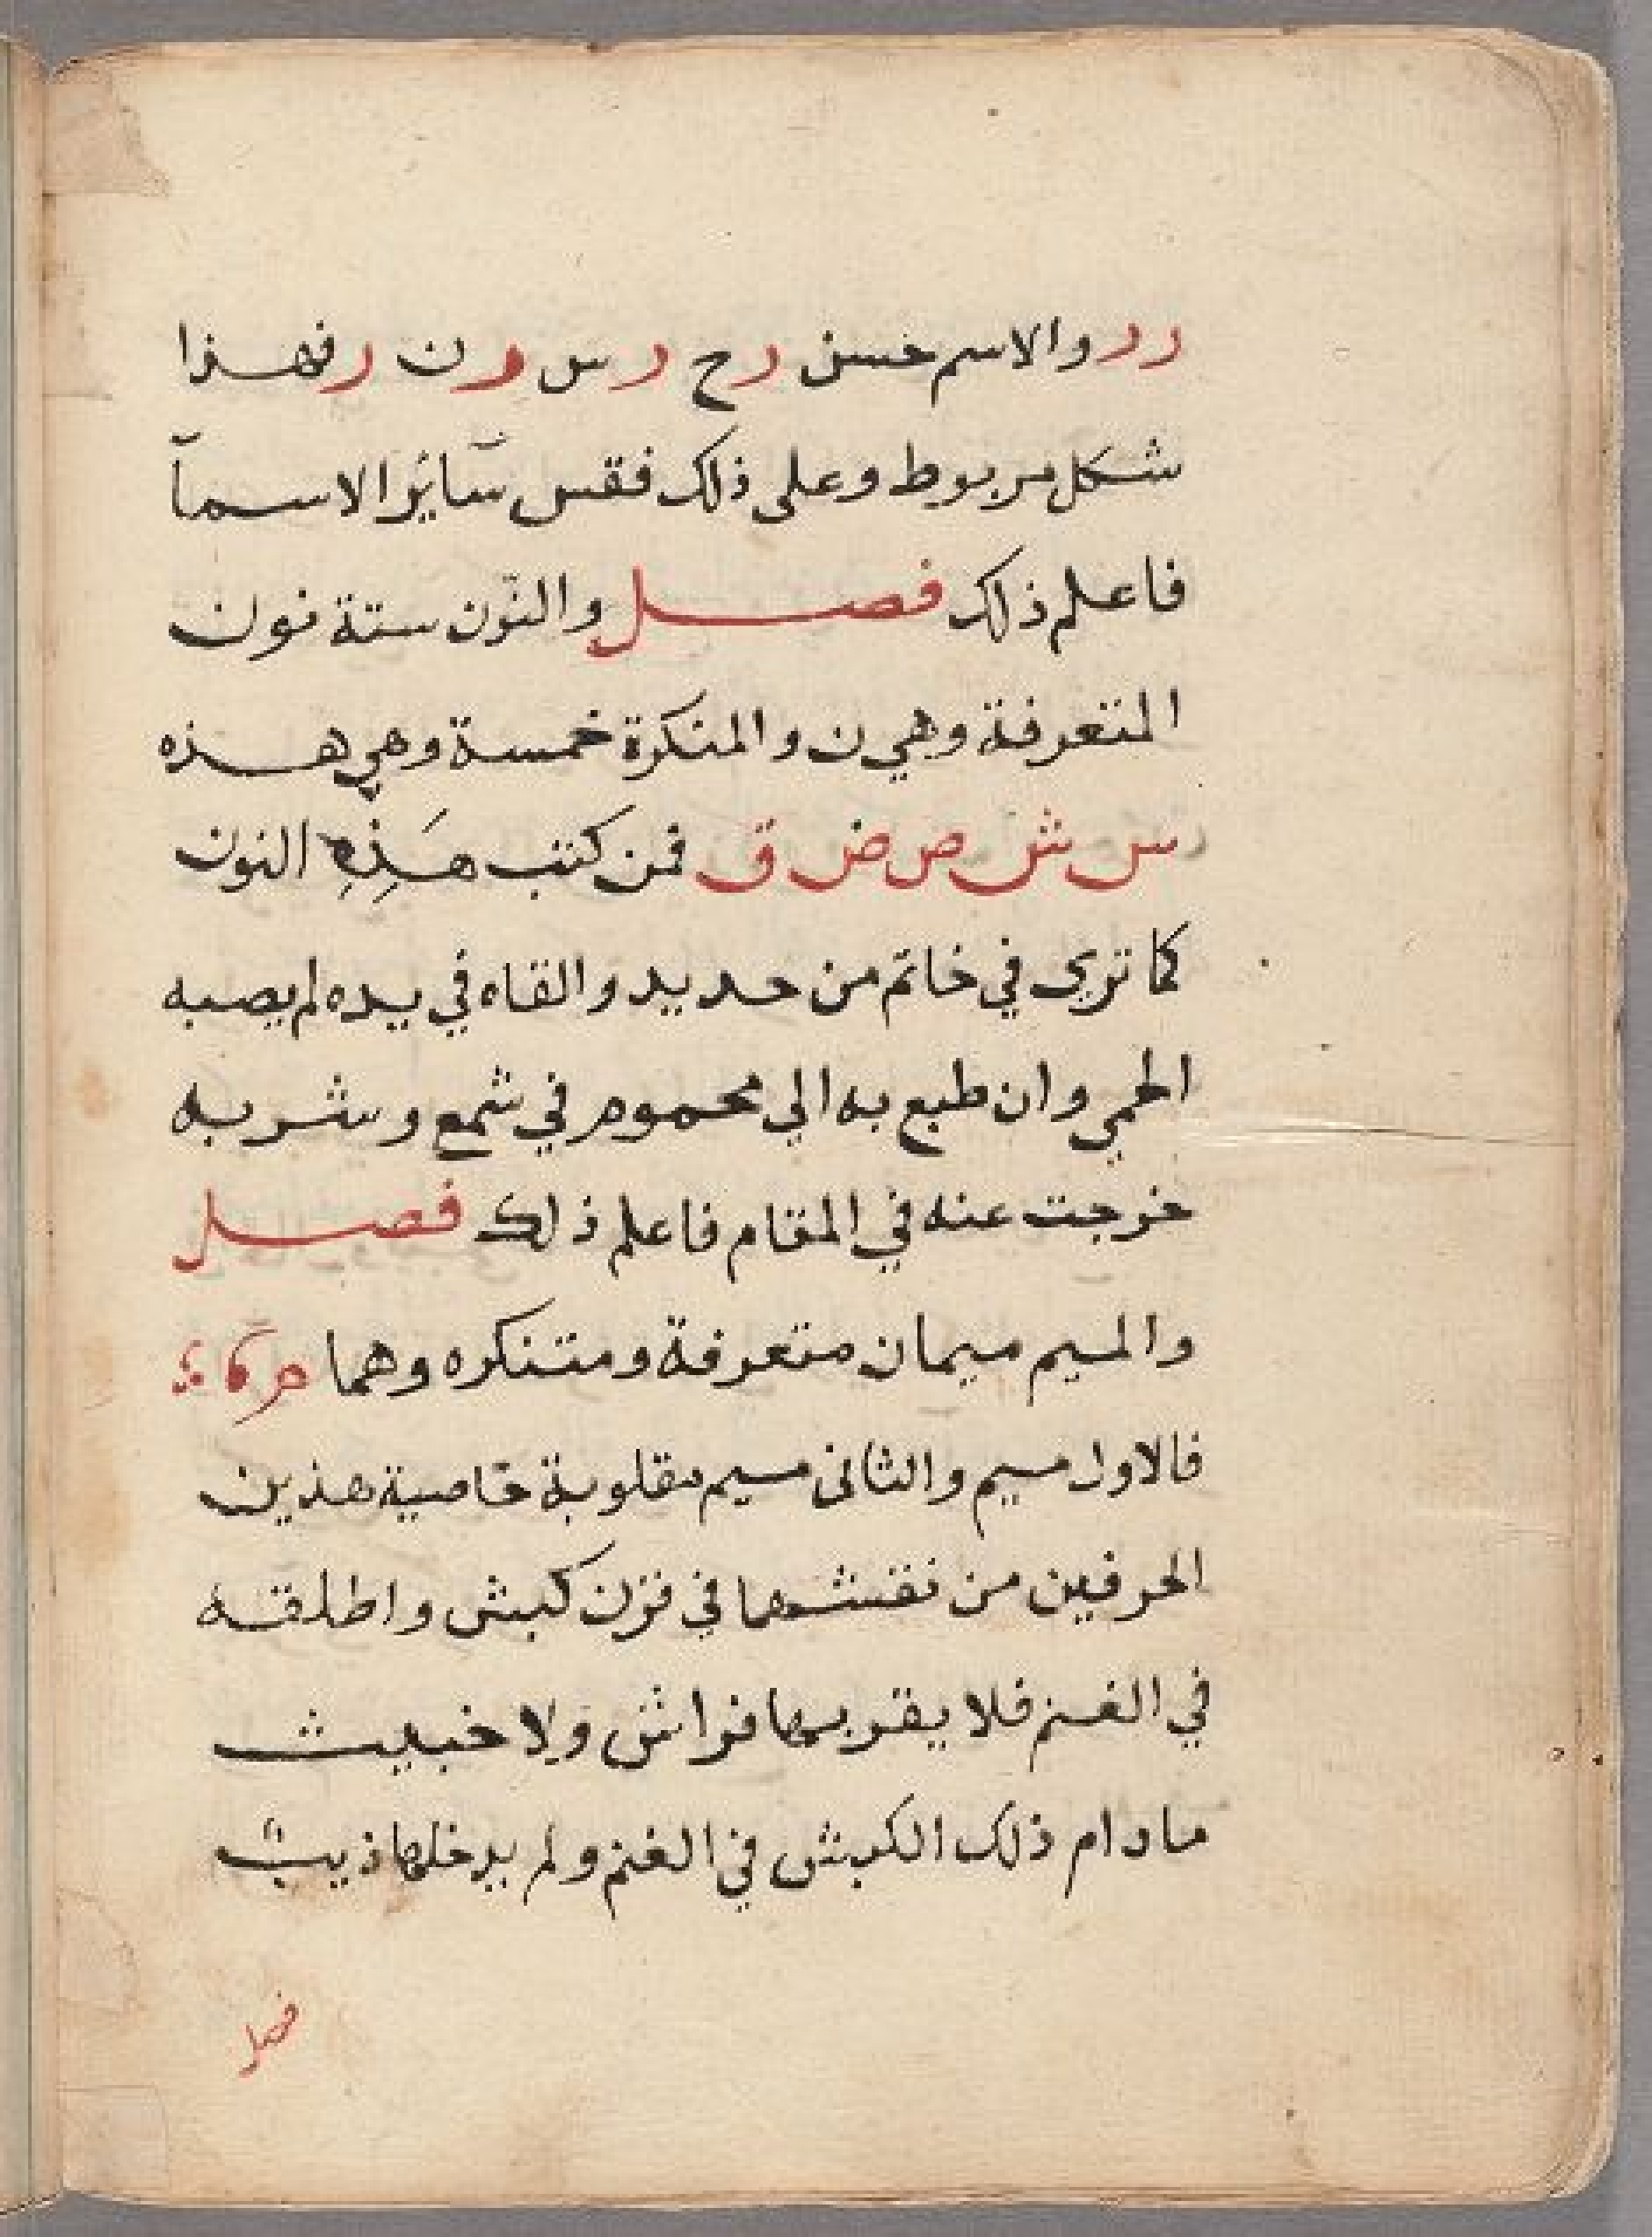 ر ر والاسم حسن ر ح ر س ر ن ر فهذا
شكل مربوط وعلى ذلك فقس سآئر الاسمآ
فاعلم ذلك فصل والنّون ستة نون
المتعرفة وهي ن والمنكرة خمسة وهي هذه
س ش ص ض ق فمن كتب هَذِهِ النون
كما ترى في خاتم من حديد والقاه في يده لم يصبه
الحمي وان طبع به الي محموم في شمع وشربه
خرجت عنه في المقام فاعلم ذلك فصل
والميم ميمان متعرفة ومتنكره وهما م
فالاول ميم والثانى ميم مقلوبة خاصية هذين
الحرفين من نقشهما في قرن كبش واطلقه
في الغنم فلا يقربها فراش ولا خبيث
مادام ذلك الكبش في الغنم ولم يدخلها ذيب
فصل